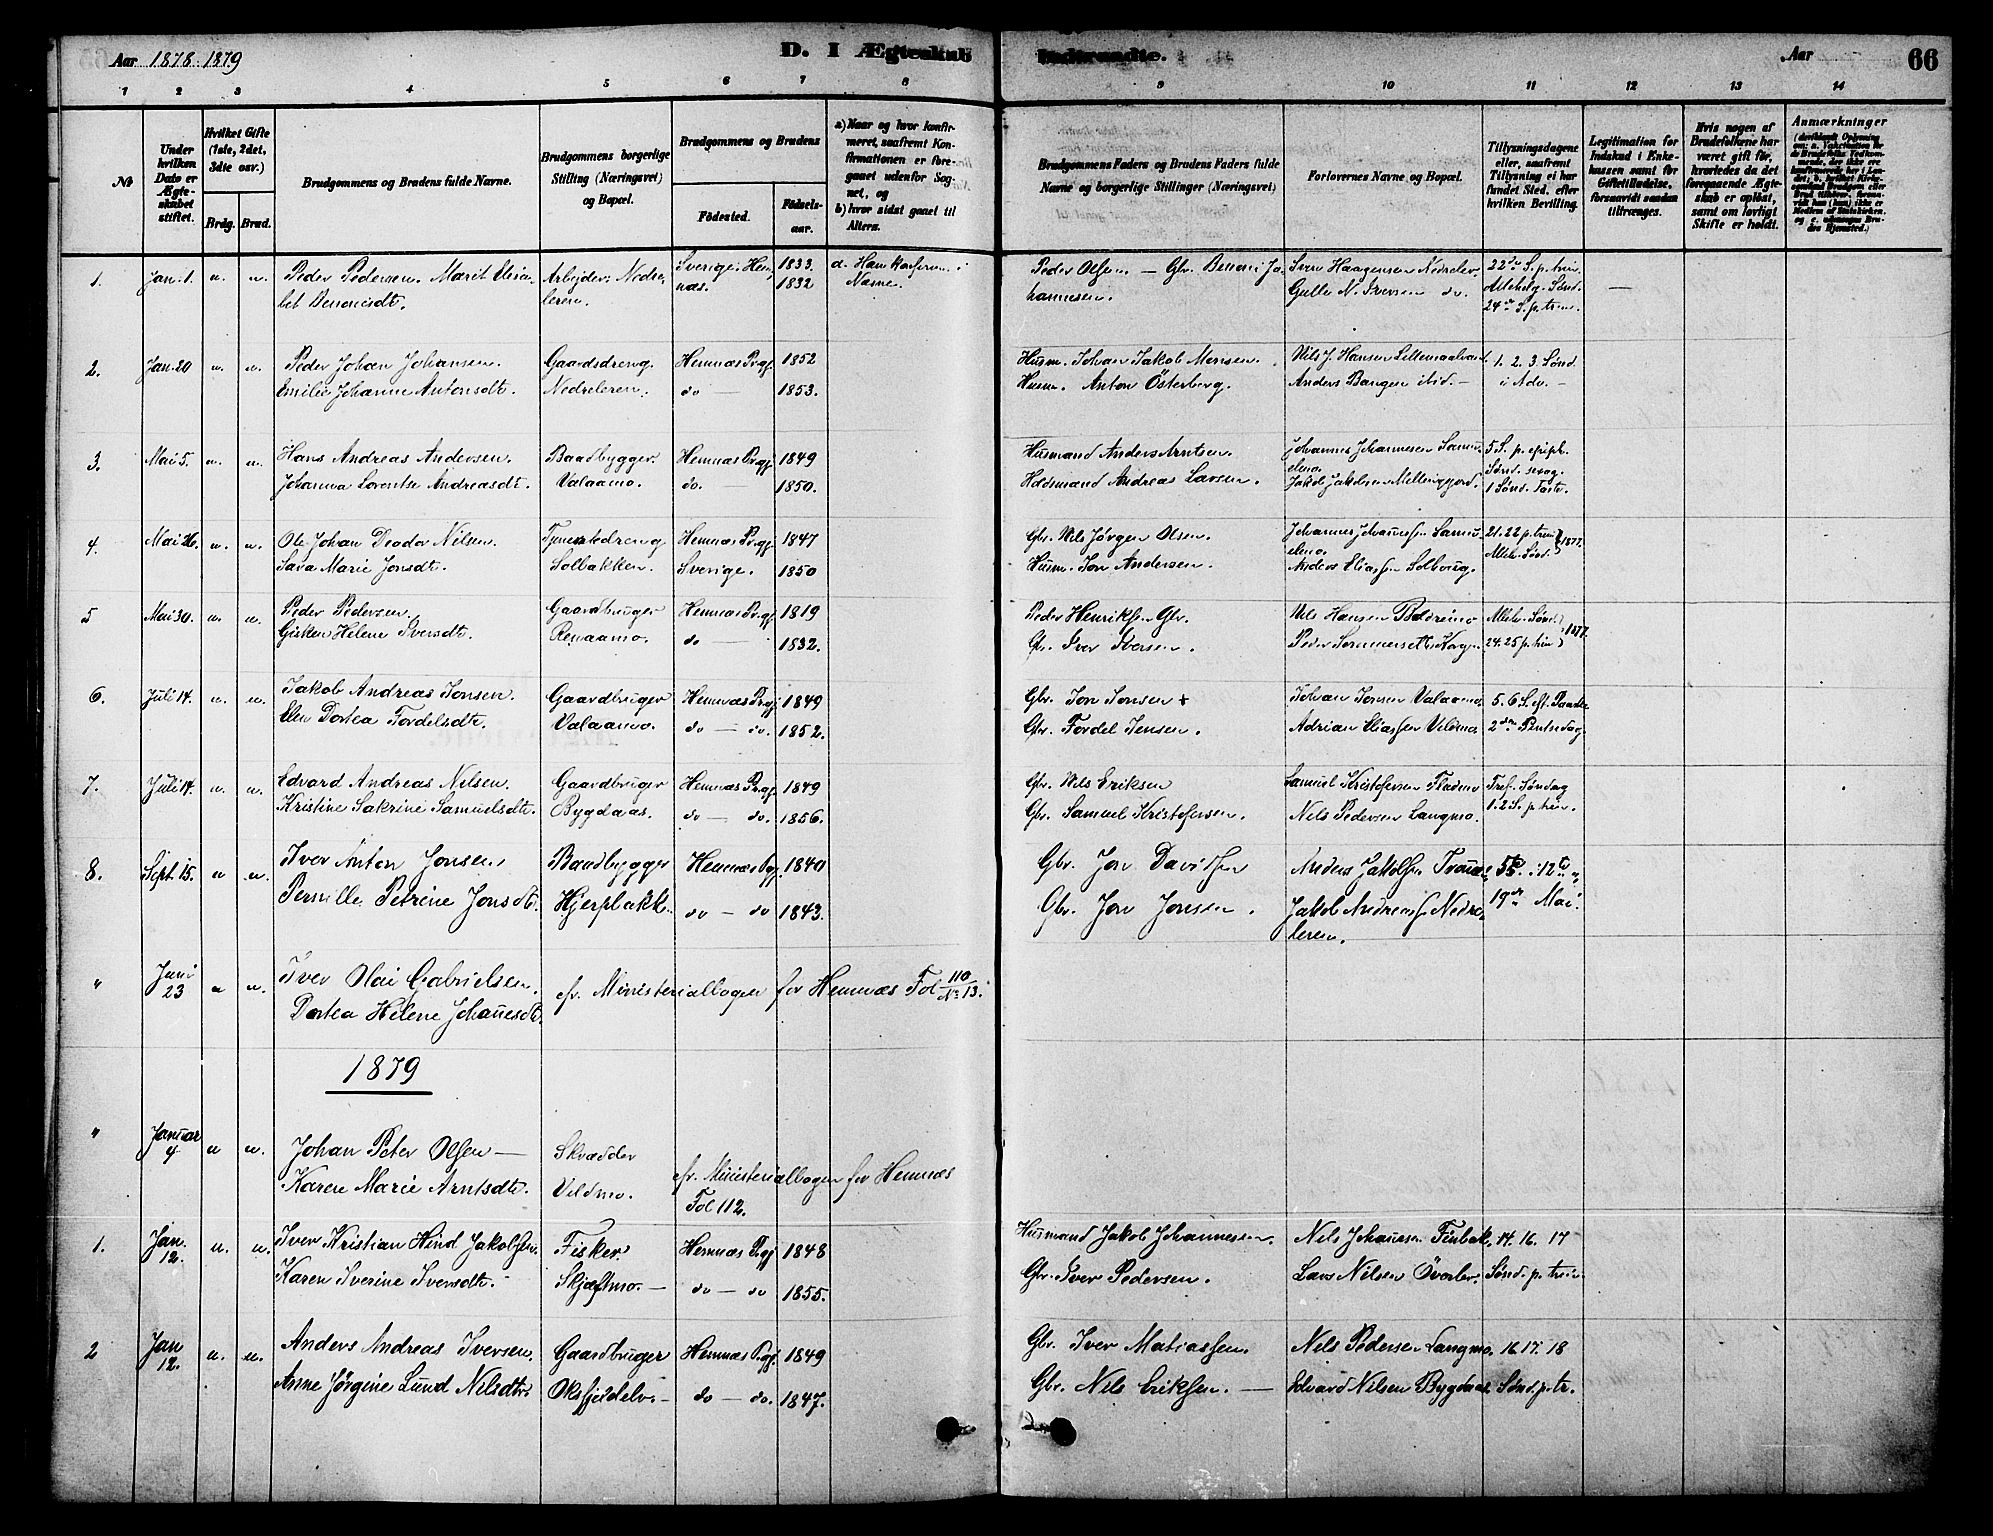 Aar 1878-1879
D. I Ægteskab
Indtraadte.
Aar
66
1 2 3 4 5 6 7 8 9 10 11 12 13 14
№
Under hvilken Dato er Ægteskabet stiftet.
Hvilket Gifte (1ste, 2det, 3die osv.)
Brdg. Brud.
Brudgommens og Brudens fulde Navne.
Brudgommens borgerlige Stilling (Næringsvei) og Bopæl.
Brudgommens og Brudens
Födested.
Födselsaar.
a) Naar og hvor konfirmeret, saafremt Konfirmationen er foregaaet udenfor Sognet, og
b) hvor sidst gaaet til Alters.
Brudgommens Faders og Brudens Faders fulde Navne og borgerlige Stillinger (Næringsvei)
Forlovernes Navne og Bopæl.
Tillysningsdagene eller, saafremt Tillysning ei har fundet Sted, efter hvilken Bevilling.
Legitimation for Indskud i Enkekassen samt for Giftetilladelse, forsaavidt saadan tiltrænges.
Hvis nogen af Brudefolkene har været gift för, hvorledes da det foregaaende Ægteskab er oplöst, samt om lovligt Skifte er holdt.
Anmærkninger
1. Jan. 1 u. u. Peder Pedersen. Marit Elisa- Arbejder. Nedre- Sverige. Hem- 1833. a. Han konfirm. i Peder Olsen — Gbr. Benoni Jo- Sven Haagensen Nedreler. 22de S. p. trin.
bet Benonisdt. leren. næs. 1832 Næsne. hannesen. Gulle N. Iversen do. Allehelg. Sönd. —
24de S. p. trin.
2. Jan. 20 u. u. Peder Johan Johansen. Gaardsdreng. Hemnæs Prgj. 1852 Husm. Johan Jakob Monsen. Nils J. Hansen 1. 2. 3. Sönd.
Emilie Johanne Antonsdt. Nedreleren. do — 1853. Husm. Anton Österberg. Anders Bangen ibid. — i Adv. —
3. Mai 5. u. u. Hans Andreas Andersen. Baadbygger. Hemnæs Prgj. 1849 Husmand Anders Arntsen. Johannes Johannesen 5 S. p. epiph.
Johanna Lorentse Andreasdt. Valaamo. do. — 1850. Husmand Andreas Larsen. Jakob Jakobsen Sönd. sexag.
1 Sönd. Faste.
4. Mai 26. u. u. Ole Johan Deodor Nilsen. Tjenestedreng Hemnæs Prgj. 1847 Gbr. Nils Jörgen Olsen. Johannes Johannesen 21. 22 p. trin. 1877.
Sara Marie Jonsdt. Solbakken. Sverige. 1850 Husm. Jon Andersen. Anders Eliassen Solborg. Alleh. Sönd.
5 Mai 30. u. u. Peder Pedersen Gaardbruger Hemnæs Prgj. 1819 Peder Henriksen Gbr. Nils Hansen Alleh. Sönd. 1877.
Gisken Helene Iversdt. Renaamo. do — 1832. Gbr. Iver Iversen. Peder Sommerseth Korgen 24. 25 p. trin
6. Juli 14. u. u. Jakob Andreas Jonsen. Gaardbruger Hemnæs Prgj. 1849 Gbr. Jon Jonsen + Johan Jonsen Valaamo 5. 6 S. eft. Paaske
Elen Dortea Fordelsdt. Valaamo. do — do. 1852. Gbr. Fordel Jensen. Adrian Eliassen Veldmo 2den Pintsedag
7. Juli 14. u. u. Edvard Andreas Nilsen. Gaardbruger Hemnæs Prgj. 1849 Gbr. Nils Eriksen Samuel Kristofersen Fladmo Tref. Söndag
Kristine Sakrine Samuelsdt. Bygdaas. do — do. 1856. Gbr. Samuel Kristofersen. Nils Pedersen Langmo. 1. 2 S. p. trin.
8. Sept. 15. u u. Iver Anton Jonsen Baadbygger Hemnæs Pgj. 1840 Gbr. Jon Davidsen Anders Jakobsen 5te. 12te "
Pernille Petrine Jonsdt. Hjerpbakk. do — do 1843. Gbr. Jon Jonsen. Jakob Andreasen Nedre- 19de Mai.
leren.
" Juni 23 u u. Iver Olai Gabrielsen. cfr. Ministerialbogen for Hemnæs Fol 110/№ 13.
Dortea Helene Johansdt.
1879
" Januar 4 u u. Johan Peter Olsen — Skrædder cfr. Ministerialbogen for Hemnæs
Karen Marie Arntsdt. Veldmo. Fol 112.
1. Jan. 12. u. u. Iver Kristian Hind Jakobsen. Fisker Hemnæs Pgj 1848 Husmand Jakob Johannessen. Nils Johansen Finbak. 14. 16. 17
Karen Iverine Iversdt. Skjæftmo. — do — do 1855. Gbr. Iver Pedersen. Lars Nilsen Överler. Sönd. p. trin.
2 Jan 12. u. u. Anders Andreas Iversen. Gaardbruger Hemnæs Pgj. 1849 Gbr. Iver Matiassen. Nils Pedersen Langmo. 16 17. 18
Anne Jörgine Lund Nilsdtr. Oksfjeldelv. — do — do. 1847. Gbr. Nils Eriksen. — Edvard Nilsen Bygdaas. Sönd. p. tr.